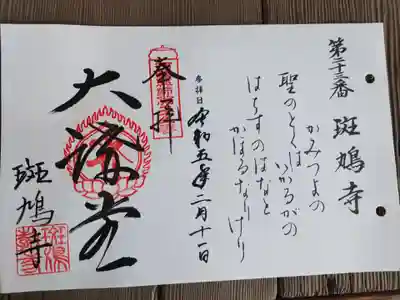 第三十三番 斑鳩寺
かみつよの
聖のとくは いかるがの
はちすのはなと
かほるなりけり
参拝日 令和五年二月十一日
奉拝
大講堂
斑鳩寺